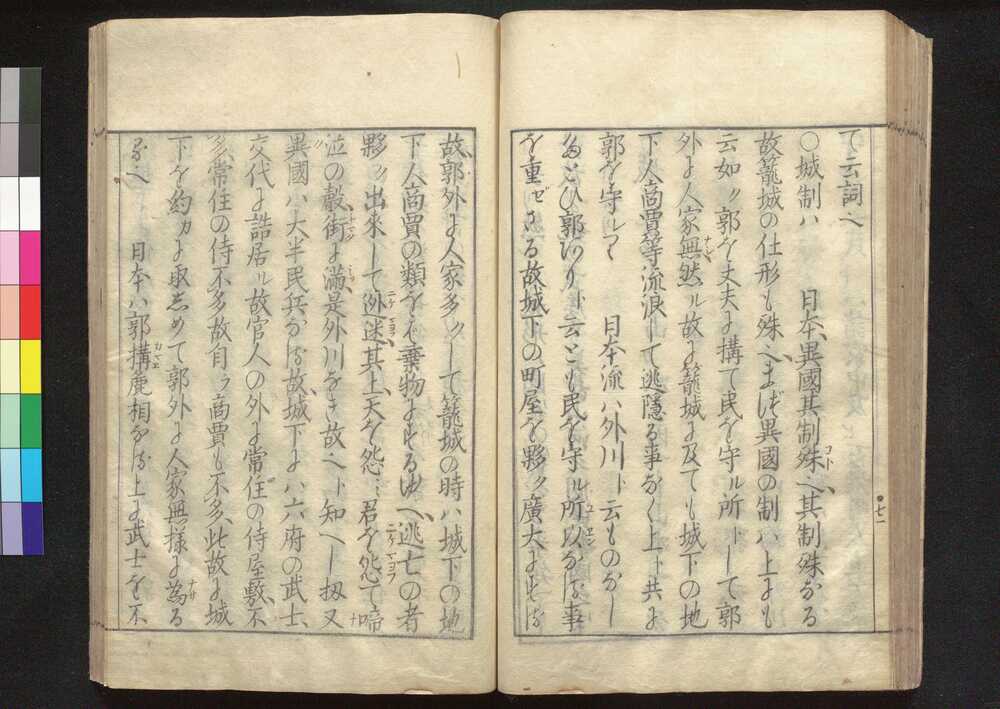 て云詞也
○城制ハ 日本異國其制殊也其制殊なる
故籠城の仕形も殊也まず異國の制ハ上にも
云如ク郭を丈夫に構て民を守ル所トして郭
外に人家無然ル故に籠城に及ても城下の地
下人商賈等流浪して逃隠る事なく上ト共に
郭を守ルヿ 日本流ハ外川ト云ものなし
たとひ郭ありト云とも民を守ル所以なる事
を重ぜざる故城下の町屋を夥ク廣大にする
故郭外に人家多クして籠城の時ハ城下の地
下人商賈の類をば棄物にするゆへ逃亡の者
夥ク出来して迯迷其上天を怨ミ君を怨て啼
泣の聲街に満是外川をき故也ト知へし扨又
異國ハ大半民兵なる故城下にハ六府の武士、
交代に詰居ル故官人の外に常住の侍屋敷不
多、常住の侍不多故自ラ商賈も不多、此故に城
下を約カに取しめて郭外に人家無様に為る
なへ 日本ハ郭構麁相なる上に武士を不
七一